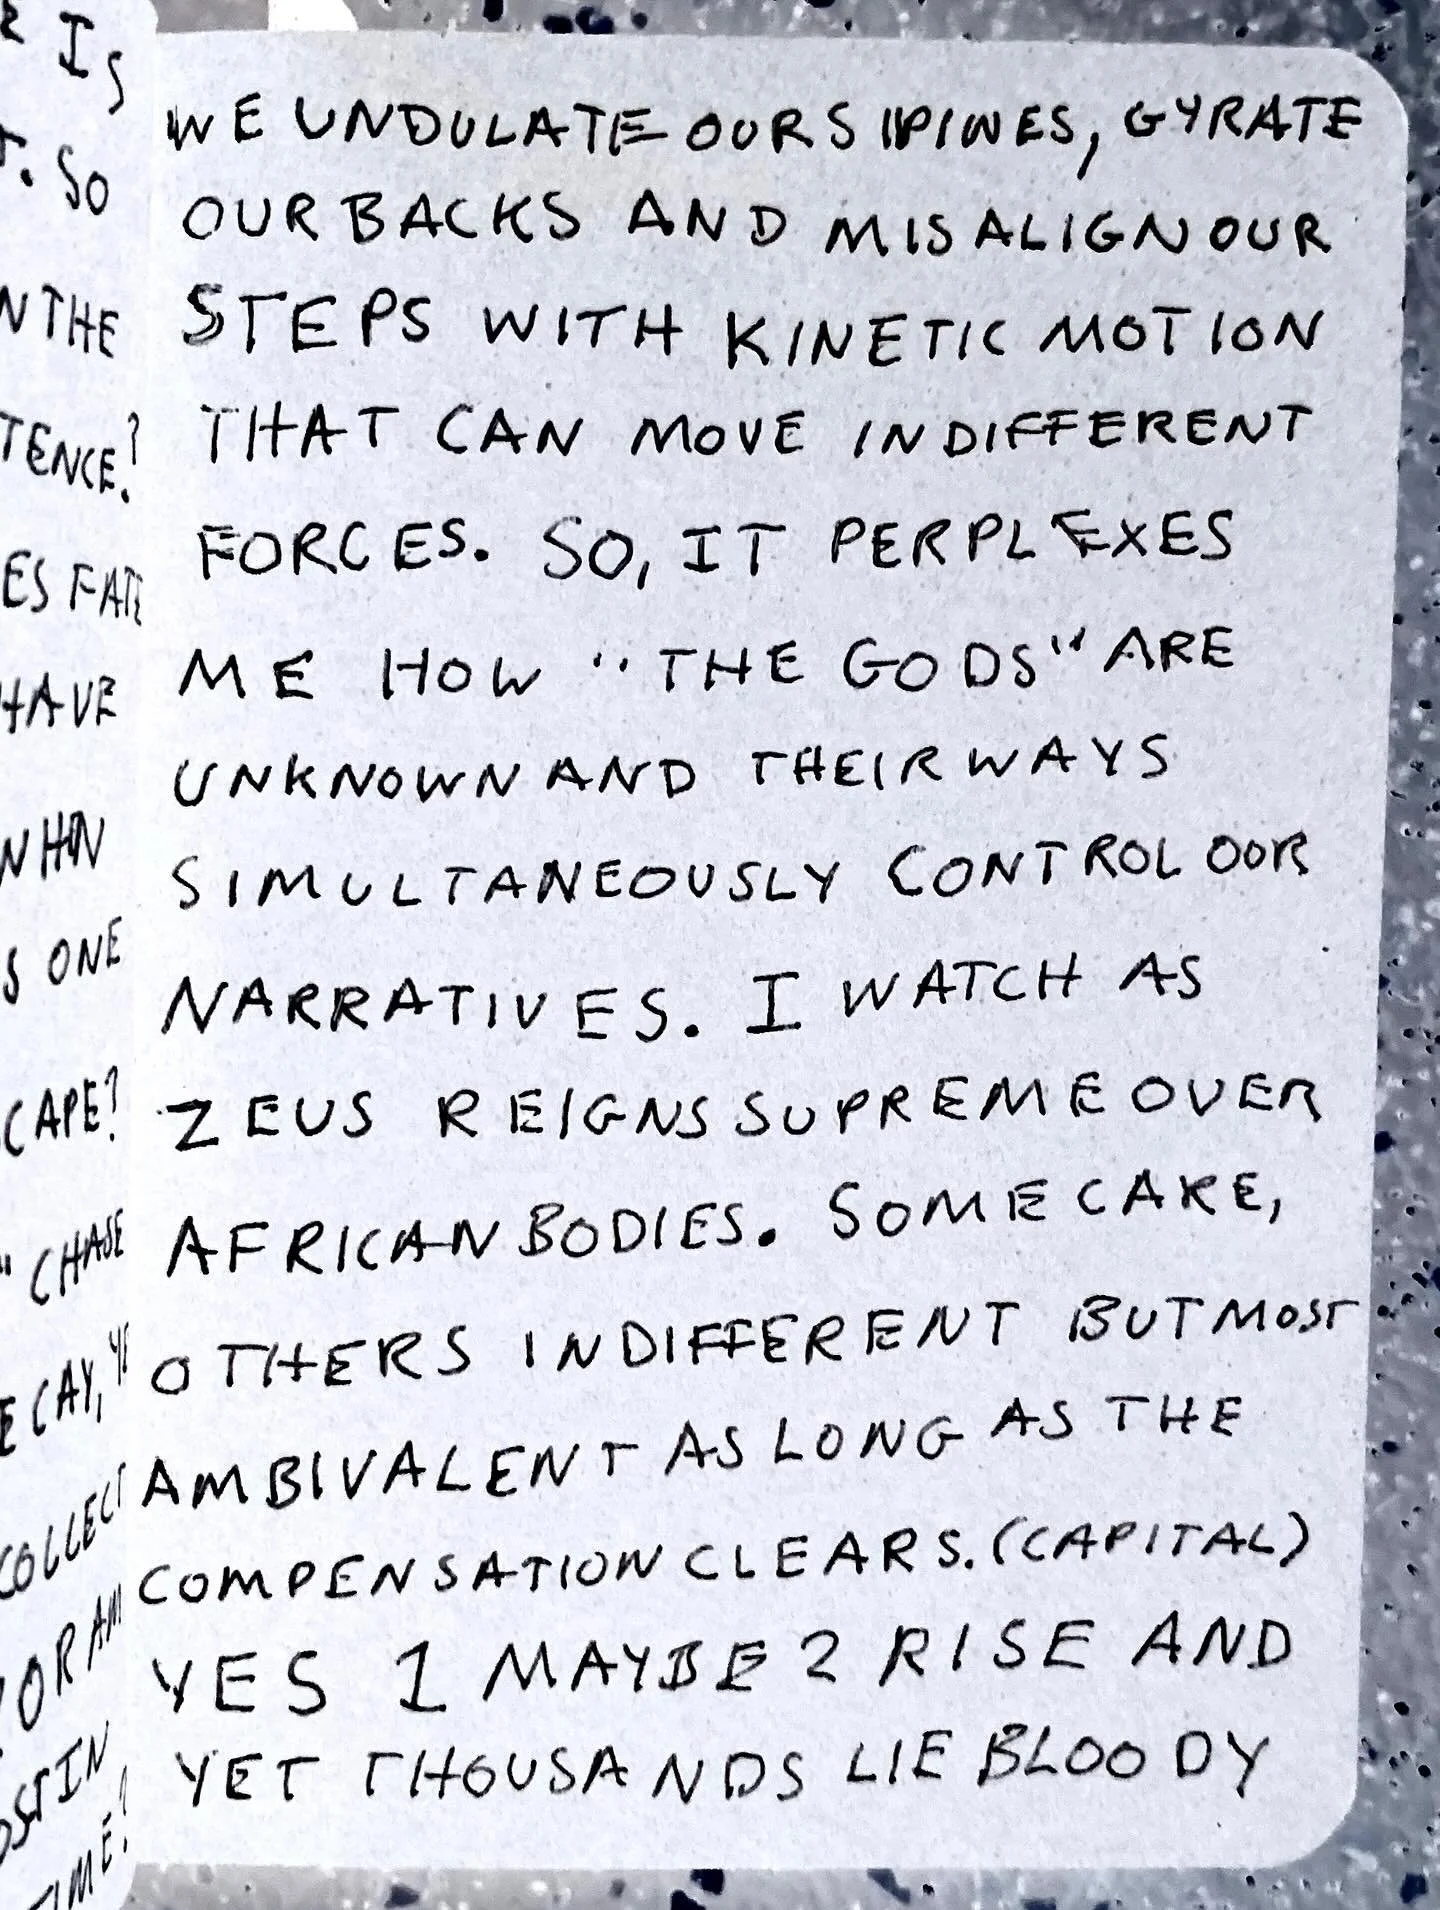 WE UNDULATE OUR SPINES, GYRATE
OUR BACKS AND MISALIGN OUR
STEPS WITH KINETIC MOTION
THAT CAN MOVE INDIFFERENT
FORCES. SO, IT PERPLEXES
ME HOW "THE GODS" ARE
UNKNOWN AND THEIR WAYS
SIMULTANEOUSLY CONTROL OUR
NARRATIVES. I WATCH AS
ZEUS REIGNS SUPREME OVER
AFRICAN BODIES. SOME CARE,
OTHERS INDIFFERENT BUT MOST
AMBIVALENT AS LONG AS THE
COMPENSATION CLEARS. (CAPITAL)
YES 1 MAYBE 2 RISE AND
YET THOUSANDS LIE BLOODY
IS
SO
THE
HAVE
ONE
CHASE